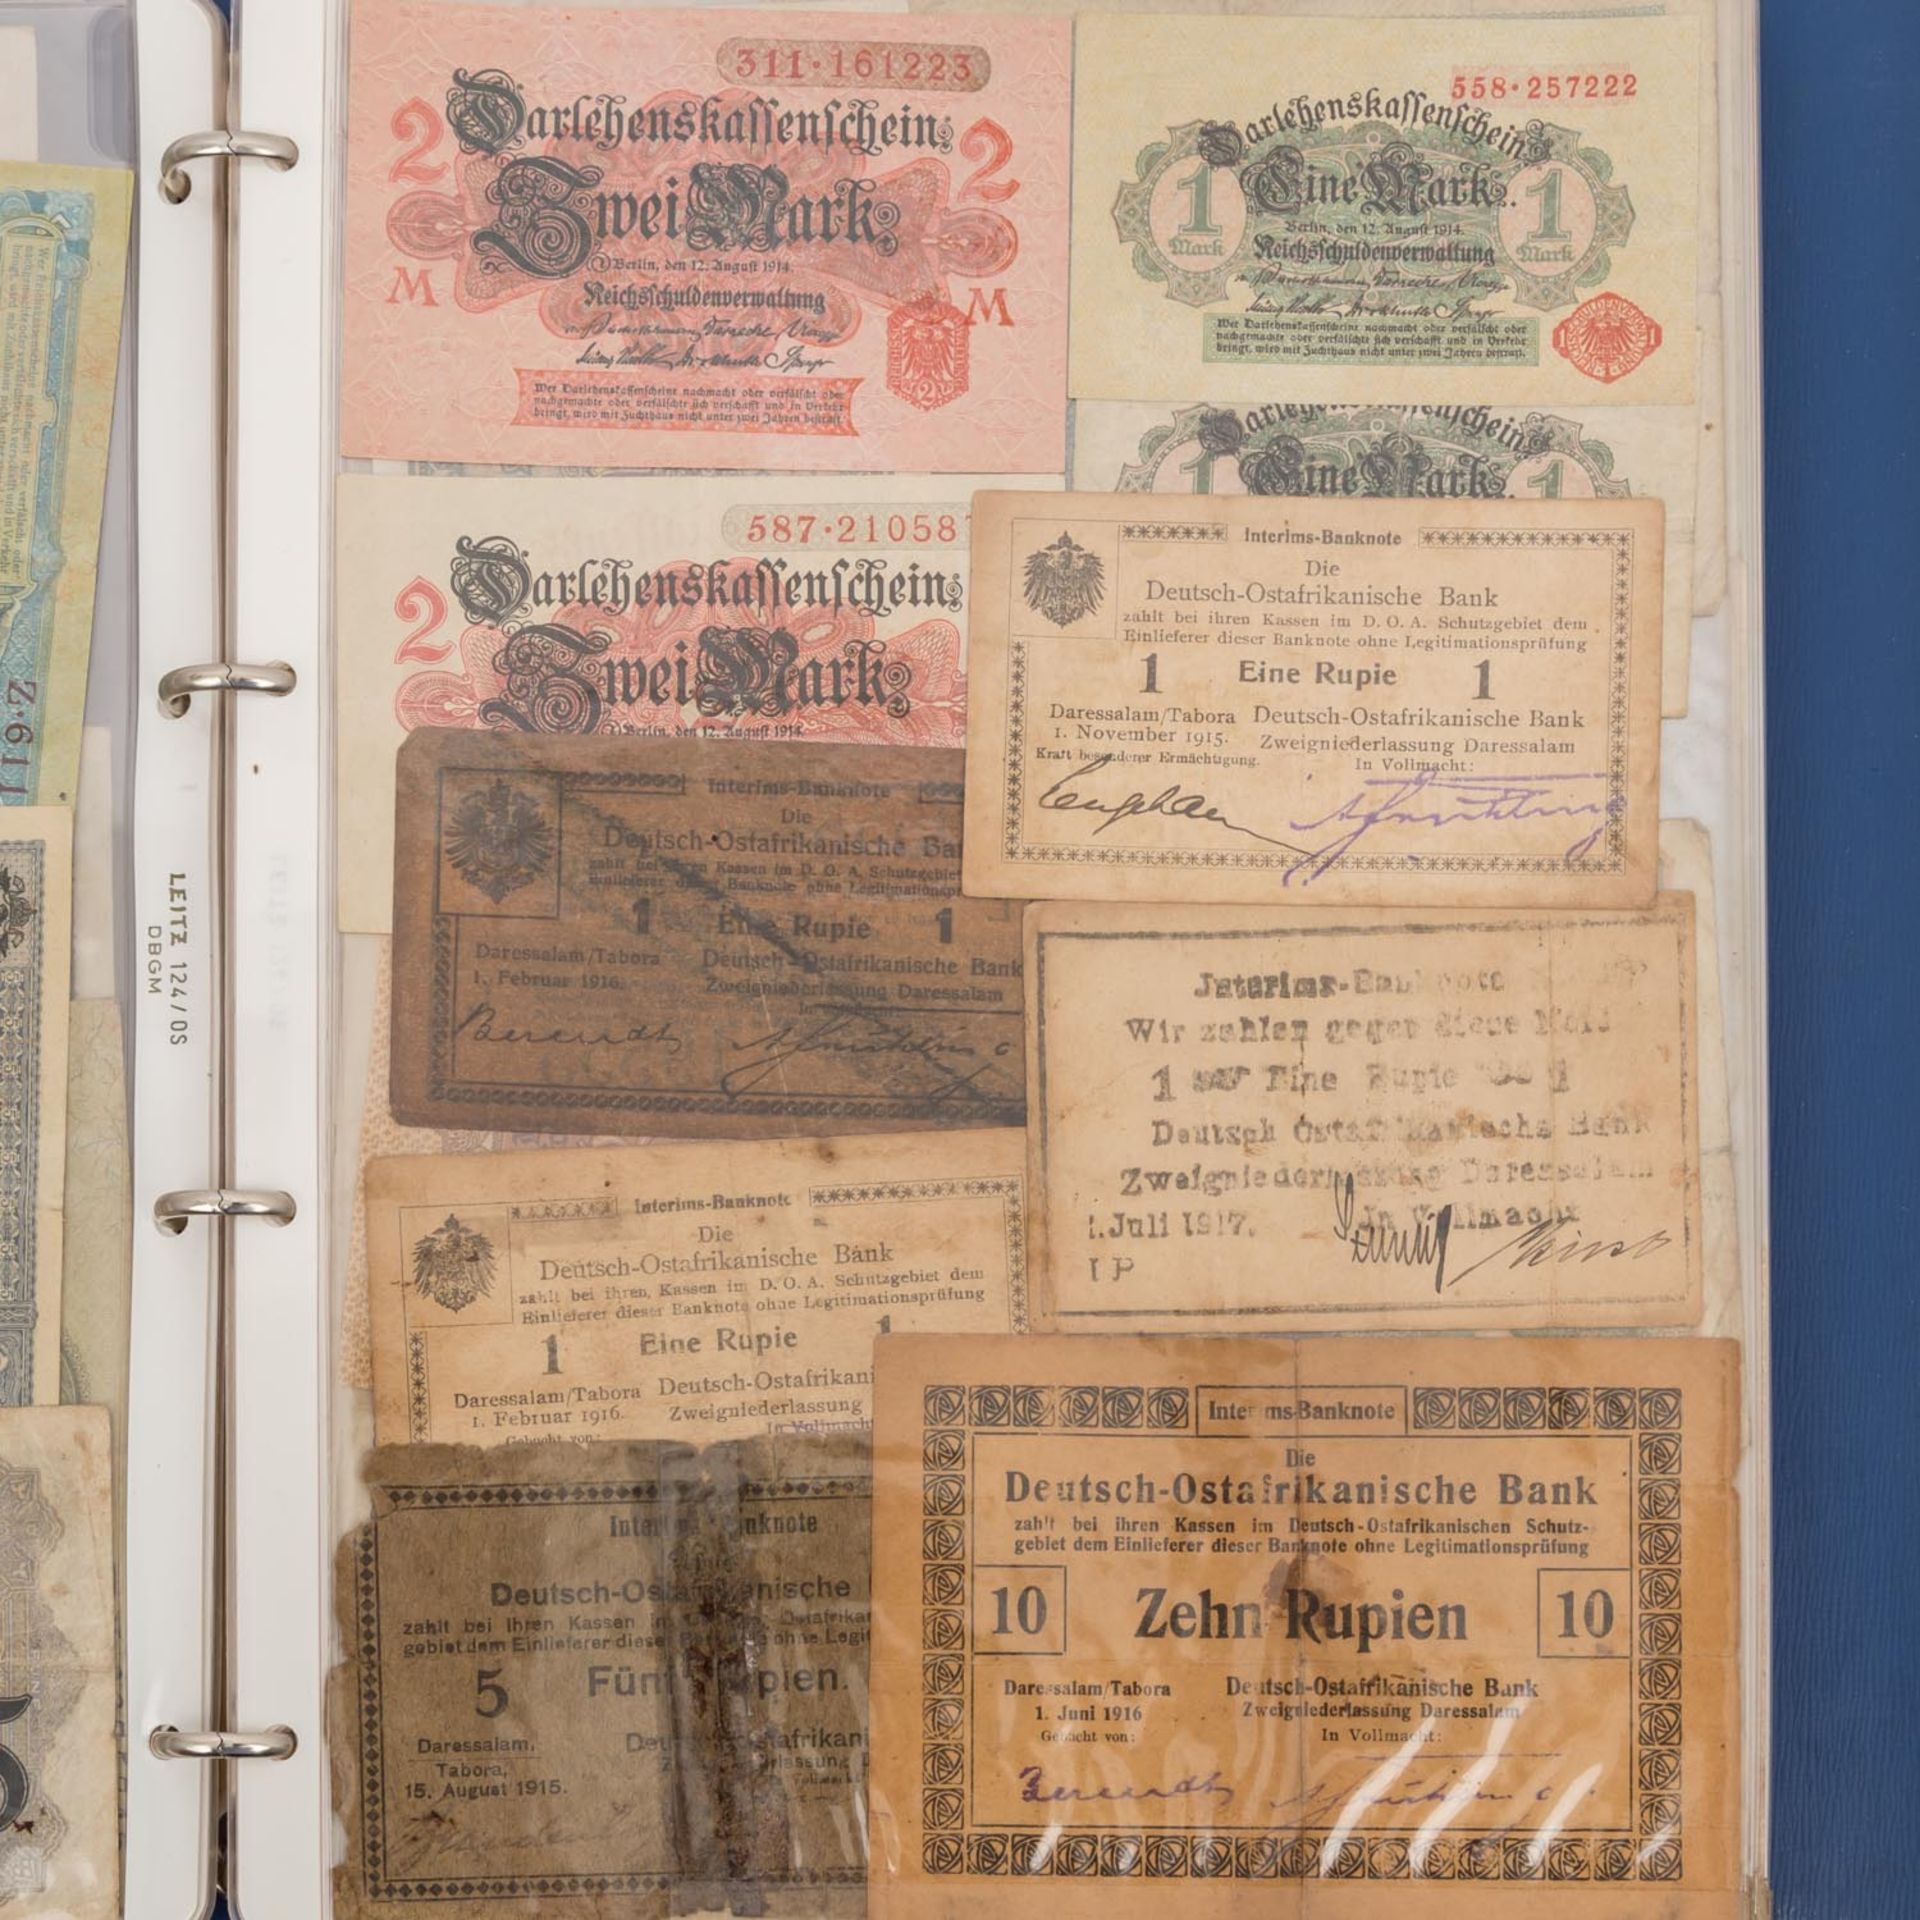 311·161223
Darlehenskassenschein
2 2
Zwei Mark
Berlin, den 12. August 1914.
M M
Reichsschuldenverwaltung
2
Wer Darlehenskassenscheine nachmacht oder verfälscht oder
nachgemachte oder verfälschte sich verschafft und in Verkehr
bringt, wird mit Zuchthaus nicht unter zwei Jahren bestraft.
558·257222
Darlehenskassenschein
1 Eine Mark. 1
Mark Mark
Berlin, den 12. August 1914.
Reichsschuldenverwaltung
Wer Darlehenskassenscheine nachmacht oder verfälscht oder
nachgemachte oder verfälschte sich verschafft und in Verkehr
bringt, wird mit Zuchthaus nicht unter zwei Jahren bestraft.
1 1
Eine Mark
587·210587
Darlehenskassenschein
2
Zwei Mark
Berlin, den 12. August 1914.
Interims-Banknote
Die
Deutsch-Ostafrikanische Bank
zahlt bei ihren Kassen im D. O. A. Schutzgebiet dem
Einlieferer dieser Banknote ohne Legitimationsprüfung
1 Eine Rupie 1
Daressalam/Tabora Deutsch-Ostafrikanische Bank
1. November 1915. Zweigniederlassung Daressalam
Kraft besonderer Ermächtigung. In Vollmacht:
Interims-Banknote
Die
Deutsch-Ostafrikanische Ba
zahlt bei ihren Kassen im D. O. A. Schutzgebiet
Einlieferer dieser Banknote ohne Legitimationsp
1 Eine Rupie 1
Daressalam/Tabora Deutsch-Ostafrikanische Bank
1. Februar 1916. Zweigniederlassung Daressalam
Berendt
Interims-Banknote
Wir zahlen gegen diese Note
1 Eine Rupie 1
Deutsch Ostafrikanische Bank
Zweigniederlassung Daressalam
1.Juli 1917. In Vollmacht
IP
Interims-Banknote
Die
Deutsch-Ostafrikanische Bank
zahlt bei ihren Kassen im D. O. A. Schutzgebiet dem
Einlieferer dieser Banknote ohne Legitimationsprüfung
1 Eine Rupie 1
Daressalam/Tabora Deutsch-Ostafrikani
1. Februar 1916. Zweigniederlassung
Gebucht von: In Vollmacht
Interims Banknote
Deutsch-Ostafrikanische
zahlt bei ihren Kassen im Ostafrikan
gebiet dem Einlieferer dieser Banknote ohne Legit
5 Fünf Rupien.
Daressalam,
Tabora,
15. August 1915.
Interims-Banknote
Die
Deutsch-Ostafrikanische Bank
zahlt bei ihren Kassen im Deutsch-Ostafrikanischen Schutz-
gebiet dem Einlieferer dieser Banknote ohne Legitimationsprüfung
10 Zehn Rupien 10
Daressalam/Tabora Deutsch-Ostafrikanische Bank
1. Juni 1916 Zweigniederlassung Daressalam
Gebucht von: In Vollmacht:
Berendt
LEITZ 124/OS
DBGM